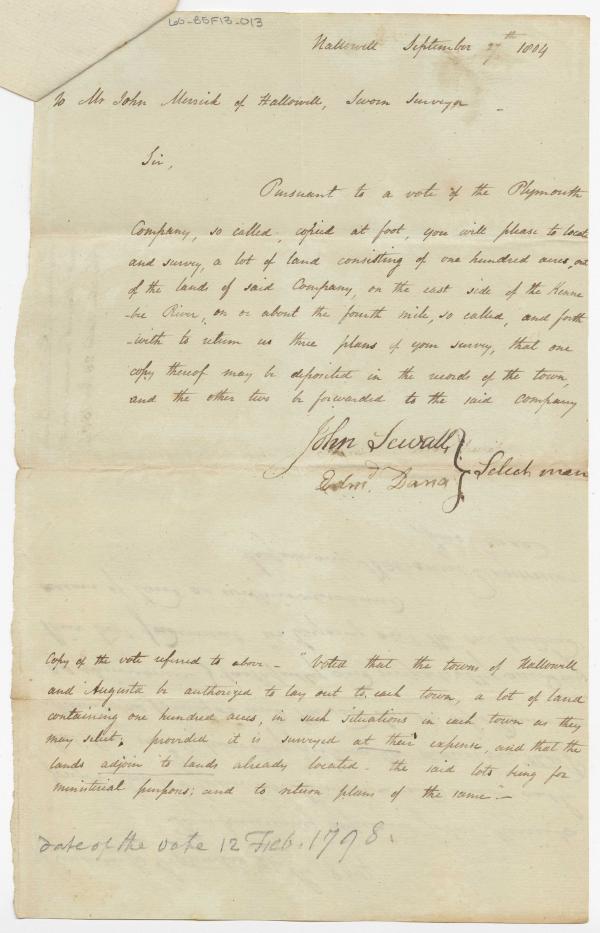 60-85F13-013
Hallowell September 27th 1804
To Mr John Merrick of Hallowell, Sworn Surveyor
Sir,
Pursuant to a vote of the Plymouth
Company, so called, copied at foot, you will please to locate
and survey, a lot of land consisting of one hundred acres, out
of the lands of said Company, on the east side of the Kenne
-bec River, on or about the fourth mile, so called, and forth
-with to return us three plans of your survey, that one
copy thereof may be deposited in the records of the town,
and the other two be forwarded to the said company
John Sewall
Edmd. Dana
Selectmen
Copy of the vote referred to above - "Voted that the towns of Hallowell
and Augusta be authorized to lay out to each town, a lot of land
containing one hundred acres, in such situations in each town as they
may select; provided it is surveyed at their expense, and that the
lands adjoin to lands already located - the said lots being for
ministerial purposes; and to return plans of the same" -
date of the vote 12 Feb. 1798.